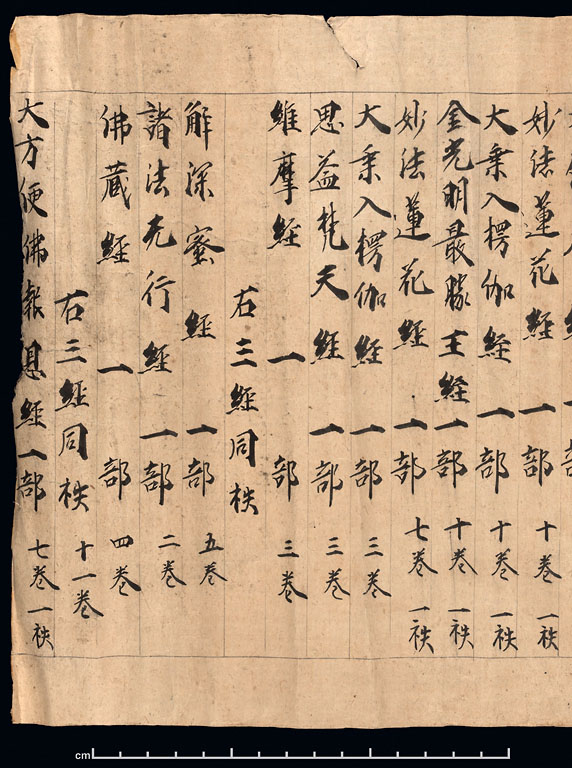 妙法蓮花經一部 十卷 一袟
大乗入楞伽經一部 十卷 一袟
金光明最勝王経一部 十卷 一袟
妙法蓮花經一部 七卷 一袟
大乗入楞伽經一部 三卷
思益梵天經一部 三卷
維摩經一部 三卷
右三經同袟
解深蜜經一部 五卷
諸法无行經一部 二卷
佛蔵經一部 四卷
右三經同袟 十一卷
大方便佛報恩經一部 七卷一袟
cm